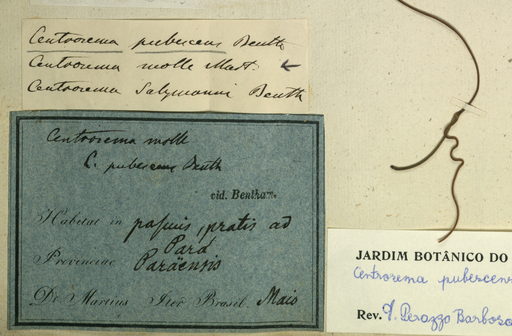 Centrosema pubescens Benth
Centrosema molle Mart. ←
Centrosema Salzmanni Benth
Centrosema molle
C. pubescens Benth
vid. Bentham.
Habitat in pascuis, pratis ad
Pará
Provinciae Paraensis
Dr. Martius Iter Brasil. Maio
JARDIM BOTÂNICO DO
Centrosema pubescens
Rev. Perazzo Barbosa